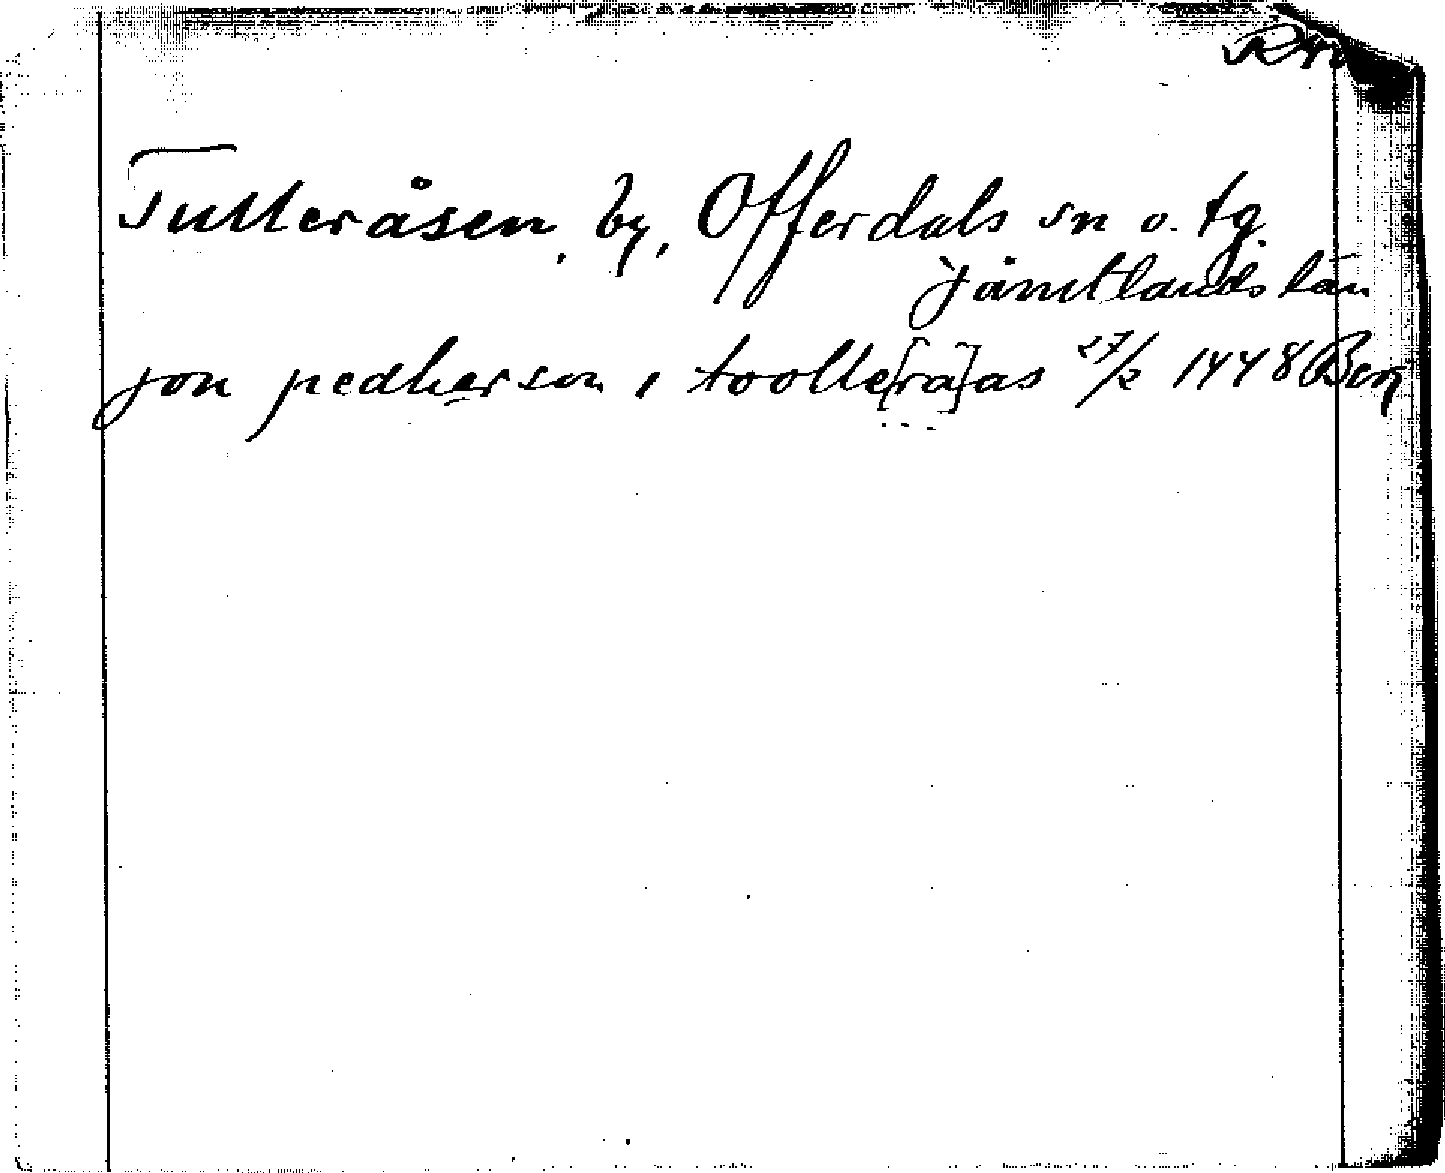 Tulleråsen, by, Offerdals sn o. tg.
Jämtlands län
jon pedherson i toolle[ra]as 27/2 1448 Berg